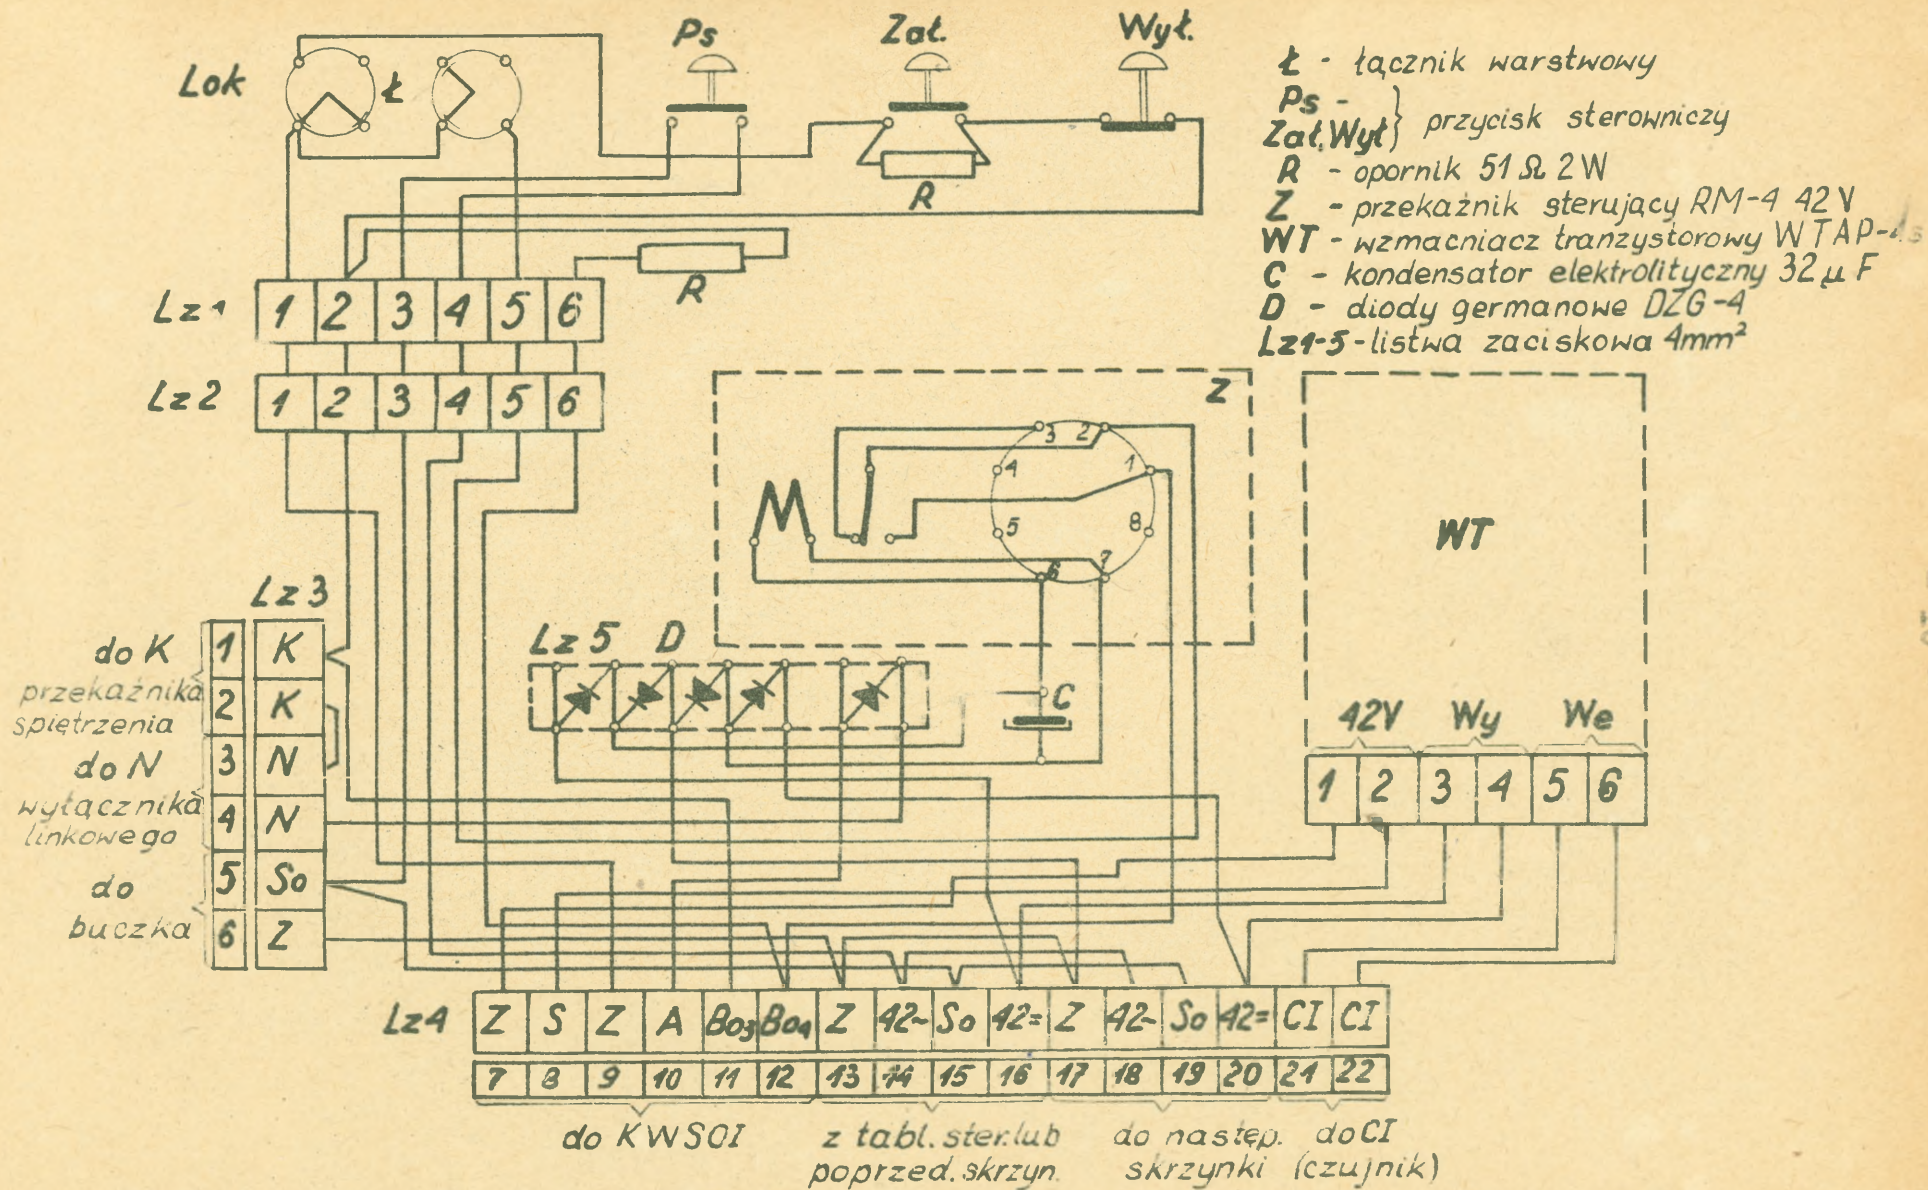 Ps
Zał.
Wył.
Lok
Ł
Ł - łącznik warstwowy
Ps -
Zał.Wył} przycisk sterowniczy
R - opornik 51 Ω 2 W
Z - przekaźnik sterujący RM-4 42 V
WT - wzmacniacz tranzystorowy WTAP-
C - kondensator elektrolityczny 32 µF
D - diody germanowe DZG-4
Lz1-5 - listwa zaciskowa 4mm²
R
R
Lz1
1 2 3 4 5 6
Lz2
1 2 3 4 5 6
Z
3 2
4 1
5 8
6 7
WT
Lz3
Lz5 D
C
do K
przekaźnika
spiętrzenia
do N
wyłącznika
linkowego
do
buczka
1 K
2 K
3 N
4 N
5 So
6 Z
42V Wy We
1 2 3 4 5 6
Lz4
Z S Z A Bo3 Bo4 Z 42~ So 42= Z 42~ So 42= CI CI
7 8 9 10 11 12 13 14 15 16 17 18 19 20 21 22
do KWSOI
z tabl. ster. lub
poprzed. skrzyn.
do następ.
skrzynki
do CI
(czujnik)